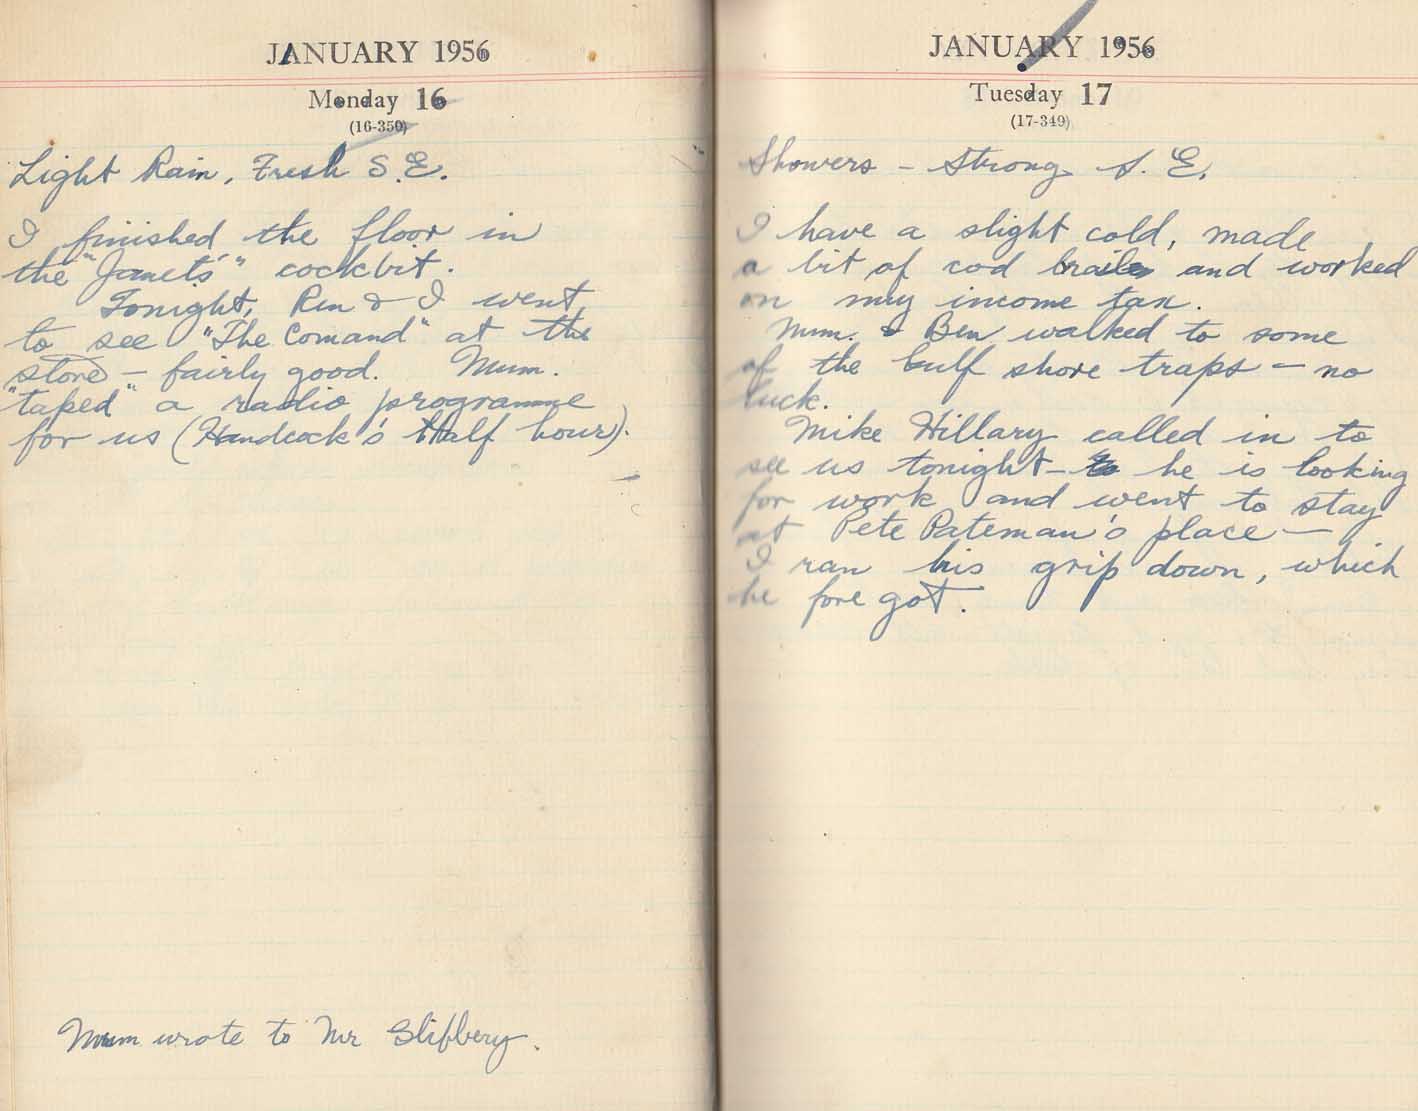 JANUARY 1956
Monday 16
(16-350)
Light Rain, Fresh S.E.
I finished the floor in
the "Janet's" cockbit.
Tonight, & I went
to see "The Comand" at the
store – fairly good. Mum.
"taped" a radio programme
for us (Handcock's Half hour).
Mum wrote to Mr
JANUARY 1956
Tuesday 17
(17-349)
Showers – Strong S. E.
I have a slight cold, made
a bit of cod and worked
on my income tax.
Mum. & Ben walked to some
of the Gulf shore traps – no
luck.
Mike Hillary called in to
see us tonight – he is looking
for work and went to stay
at Pete Pateman's place –
I ran his grip down, which
he fore got.